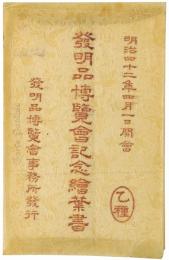 明治四十二年四月一日開會
發明品博覽會記念繪葉書
乙種
發明品博覽會事務所發行